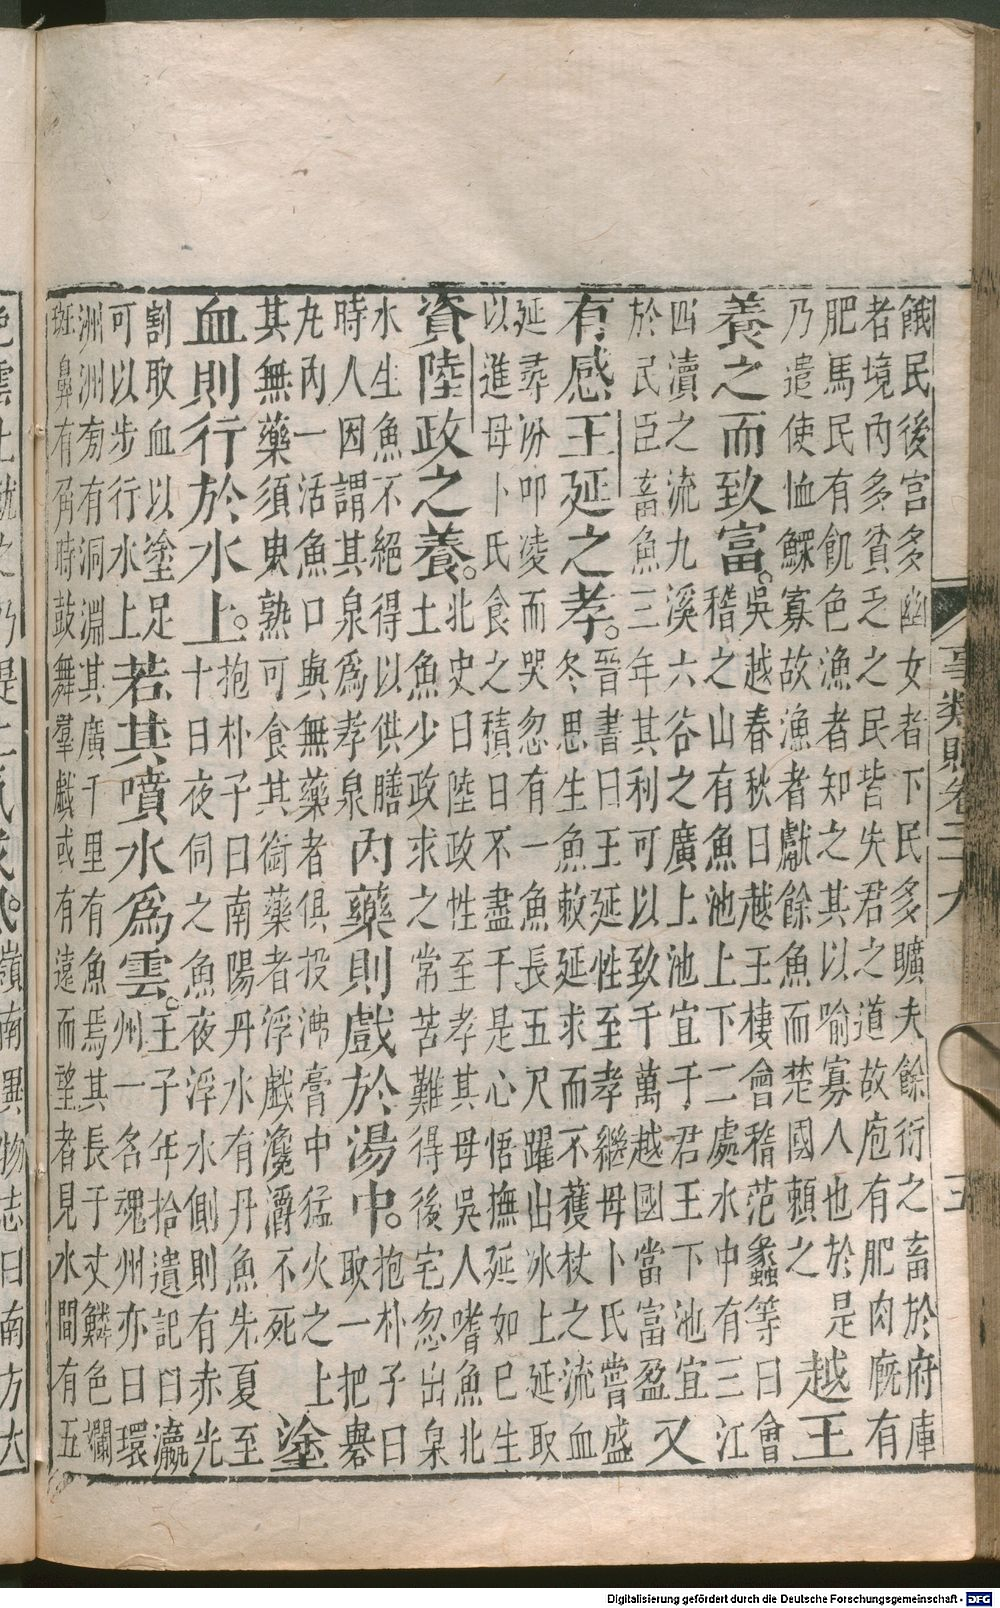 餓民後宮多幽女者下民多曠夫餘衍之畜於府庫
者境內多貧乏之民皆失君之道故庖有肥肉廐有
肥馬民有飢色漁者知之其以喻寡人也於是
乃遣使恤鰥寡故漁者獻餘魚而楚國頼之
越王
養之而致富。
吳越春秋曰越王棲會稽范蠡等曰會
稽之山有魚池上下二處水中有三江
四瀆之流九溪六谷之廣上池宜于君王下池宜
於民臣畜魚三年其利可以致千萬越國當富盈
又
有感王延之孝。
晉書曰王延性至孝繼母卜氏嘗盛
冬思生魚敕延求而不獲杖之流血
延尋汾叩凌而哭忽有一魚長五尺躍出冰上延取
以進母卜氏食之積日不盡于是心悟撫延如巳生
資陸政之養。
北史曰陸政性至孝其母吳人嗜魚北
土魚少政求之常苦難得後宅忽出泉
水生魚不絕得以供膳
時人因謂其泉爲孝泉
內藥則戲於湯中。
抱朴子曰
取一把
丸內一活魚口與無藥者俱投沸膏中猛火之上
其無藥須臾熟可食其銜藥者浮戲瀺灂不死
塗
血則行於水上。
抱朴子曰南陽丹水有丹魚先夏至
十日夜伺之魚夜浮水側則有赤光
割取血以塗足
可以步行水上
若其噴水爲雲。
王子年拾遺記曰瀛
州一名魂州亦曰環
洲洲旁有洞淵其廣千里有魚焉其長于丈鱗色斕
斑鼻有角時鼓舞羣戲或有遠而望者見水間有五
事類賦卷二十九
嶺南異物志曰南方大
Digitalisierung gefördert durch die Deutsche Forschungsgemeinschaft - DFG